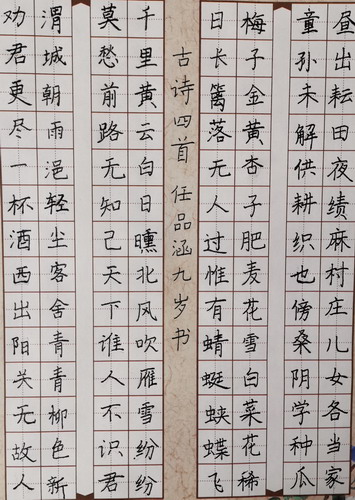 昼出耘田夜绩麻村庄儿女各当家
童孙未解供耕织也傍桑阴学种瓜
梅子金黄杏子肥麦花雪白菜花稀
日长篱落无人过惟有蜻蜓蛱蝶飞
古诗四首 任品涵九岁书
千里黄云白日曛北风吹雁雪纷纷
莫愁前路无知己天下谁人不识君
渭城朝雨浥轻尘客舍青青柳色新
劝君更尽一杯酒西出阳关无故人